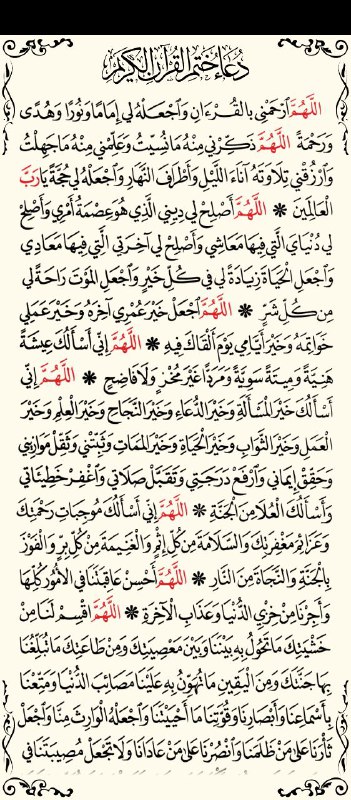 دُعَاءُ خَتْمِ الْقُرْآنِ الْكَرِيمِ
اَللَّهُمَّ ٱرْحَمْنِي بِالْقُرْءَانِ وَٱجْعَلْهُ لِي إِمَامًا وَنُورًا وَهُدًى
وَرَحْمَةً اَللَّهُمَّ ذَكِّرْنِي مِنْهُ مَا نُسِّيتُ وَعَلِّمْنِي مِنْهُ مَا جَهِلْتُ
وَٱرْزُقْنِي تِلَاوَتَهُ آنَاءَ اللَّيْلِ وَأَطْرَافَ النَّهَارِ وَٱجْعَلْهُ لِي حُجَّةً يَا رَبَّ
الْعَالَمِينَ * اَللَّهُمَّ أَصْلِحْ لِي دِينِي الَّذِي هُوَ عِصْمَةُ أَمْرِي وَأَصْلِحْ
لِي دُنْيَايَ الَّتِي فِيهَا مَعَاشِي وَأَصْلِحْ لِي آخِرَتِي الَّتِي فِيهَا مَعَادِي
وَٱجْعَلِ الْحَيَاةَ زِيَادَةً لِي فِي كُلِّ خَيْرٍ وَٱجْعَلِ الْمَوْتَ رَاحَةً لِي
مِن كُلِّ شَرٍّ * اَللَّهُمَّ ٱجْعَلْ خَيْرَ عُمْرِي آخِرَهُ وَخَيْرَ عَمَلِي
خَوَاتِمَهُ وَخَيْرَ أَيَّامِي يَوْمَ أَلْقَاكَ فِيهِ * اَللَّهُمَّ إِنِّي أَسْأَلُكَ عِيشَةً
هَنِيَّةً وَمِيتَةً سَوِيَّةً وَمَرَدًّا غَيْرَ مُخْزٍ وَلَا فَاضِحٍ * اَللَّهُمَّ إِنِّي
أَسْأَلُكَ خَيْرَ الْمَسْأَلَةِ وَخَيْرَ الدُّعَاءِ وَخَيْرَ النَّجَاحِ وَخَيْرَ الْعِلْمِ وَخَيْرَ
الْعَمَلِ وَخَيْرَ الثَّوَابِ وَخَيْرَ الْحَيَاةِ وَخَيْرَ الْمَمَاتِ وَثَبِّتْنِي وَثَقِّلْ مَوَازِينِي
وَحَقِّقْ إِيمَانِي وَٱرْفَعْ دَرَجَتِي وَتَقَبَّلْ صَلَاتِي وَٱغْفِرْ خَطِيئَاتِي
وَأَسْأَلُكَ الْعُلَا مِنَ الْجَنَّةِ * اَللَّهُمَّ إِنِّي أَسْأَلُكَ مُوجِبَاتِ رَحْمَتِكَ
وَعَزَائِمَ مَغْفِرَتِكَ وَالسَّلَامَةَ مِنْ كُلِّ إِثْمٍ وَالْغَنِيمَةَ مِنْ كُلِّ بِرٍّ وَالْفَوْزَ
بِالْجَنَّةِ وَالنَّجَاةَ مِنَ النَّارِ * اَللَّهُمَّ أَحْسِنْ عَاقِبَتَنَا فِي الْأُمُورِ كُلِّهَا
وَأَجِرْنَا مِنْ خِزْيِ الدُّنْيَا وَعَذَابِ الْآخِرَةِ * اَللَّهُمَّ اقْسِمْ لَنَا مِنْ
خَشْيَتِكَ مَا تَحُولُ بِهِ بَيْنَنَا وَبَيْنَ مَعْصِيَتِكَ وَمِنْ طَاعَتِكَ مَا تُبَلِّغُنَا
بِهَا جَنَّتَكَ وَمِنَ الْيَقِينِ مَا تُهَوِّنُ بِهِ عَلَيْنَا مَصَائِبَ الدُّنْيَا وَمَتِّعْنَا
بِأَسْمَاعِنَا وَأَبْصَارِنَا وَقُوَّتِنَا مَا أَحْيَيْتَنَا وَٱجْعَلْهُ الْوَارِثَ مِنَّا وَٱجْعَلْ
ثَأْرَنَا عَلَى مَنْ ظَلَمَنَا وَٱنْصُرْنَا عَلَى مَنْ عَادَانَا وَلَا تَجْعَلْ مُصِيبَتَنَا فِي